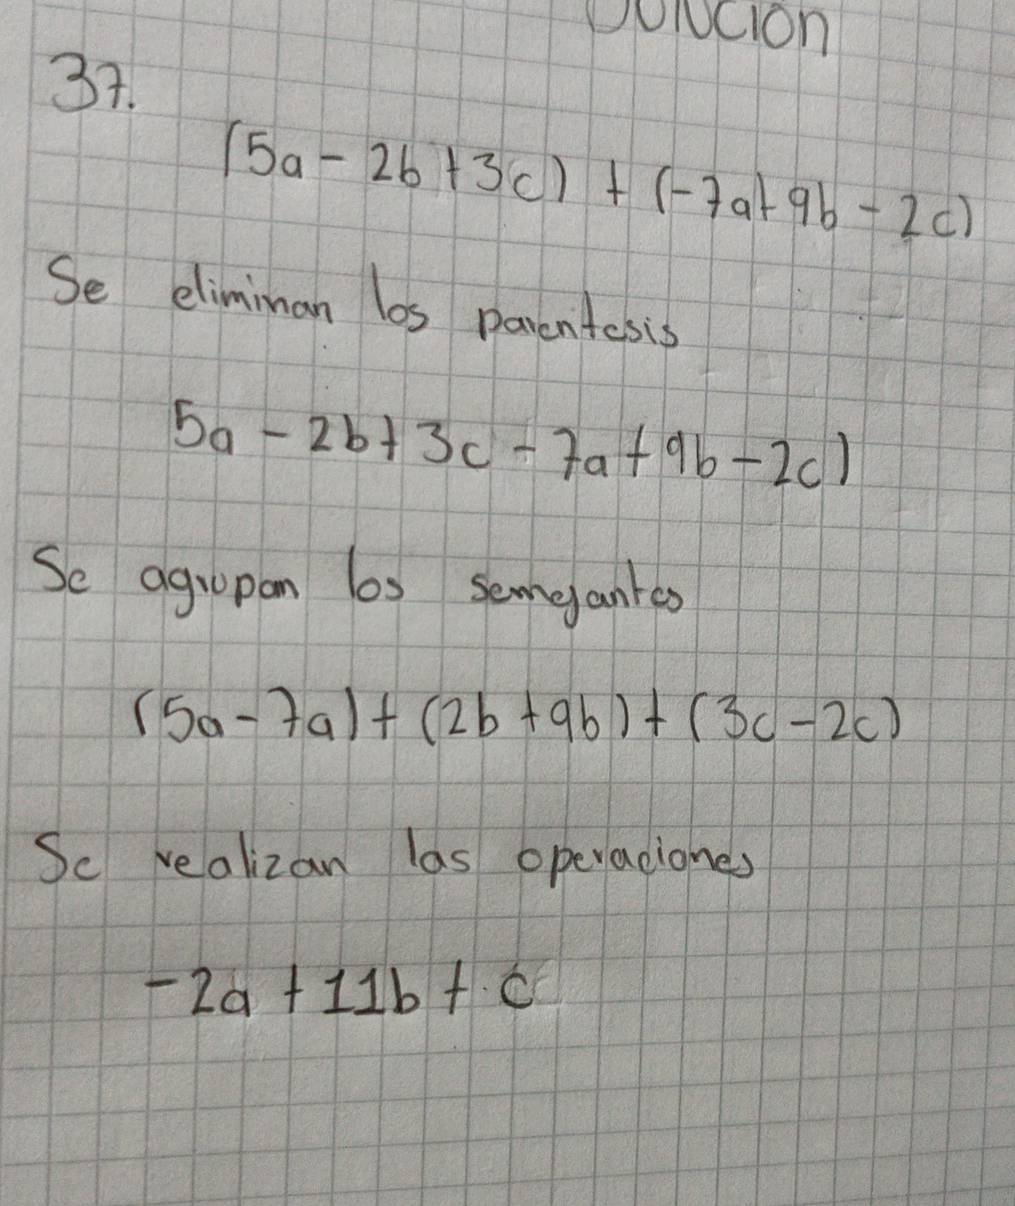 37.
(5a - 2b + 3c) + (-7a + 9b - 2c)
Se eliminan los parentesis
5a - 2b + 3c - 7a + 9b - 2c)
Se agrupan los semejantes
(5a - 7a) + (2b + 9b) + (3c - 2c)
Se realizan las operaciones
-2a + 11b + c